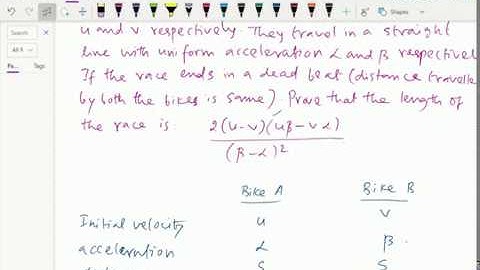 Shapes
Search
All P
Pa...
u and v respectively. They travel in a straight
line with uniform acceleration α and β respectivel
If the race ends in a dead beat (distance travelle
by both the bikes is same) Prove that the length of
the race is 2(u-v)(uβ-vα)
(β-α)²
Bike A Bike B
Initial velocity u v
acceleration α β
S S